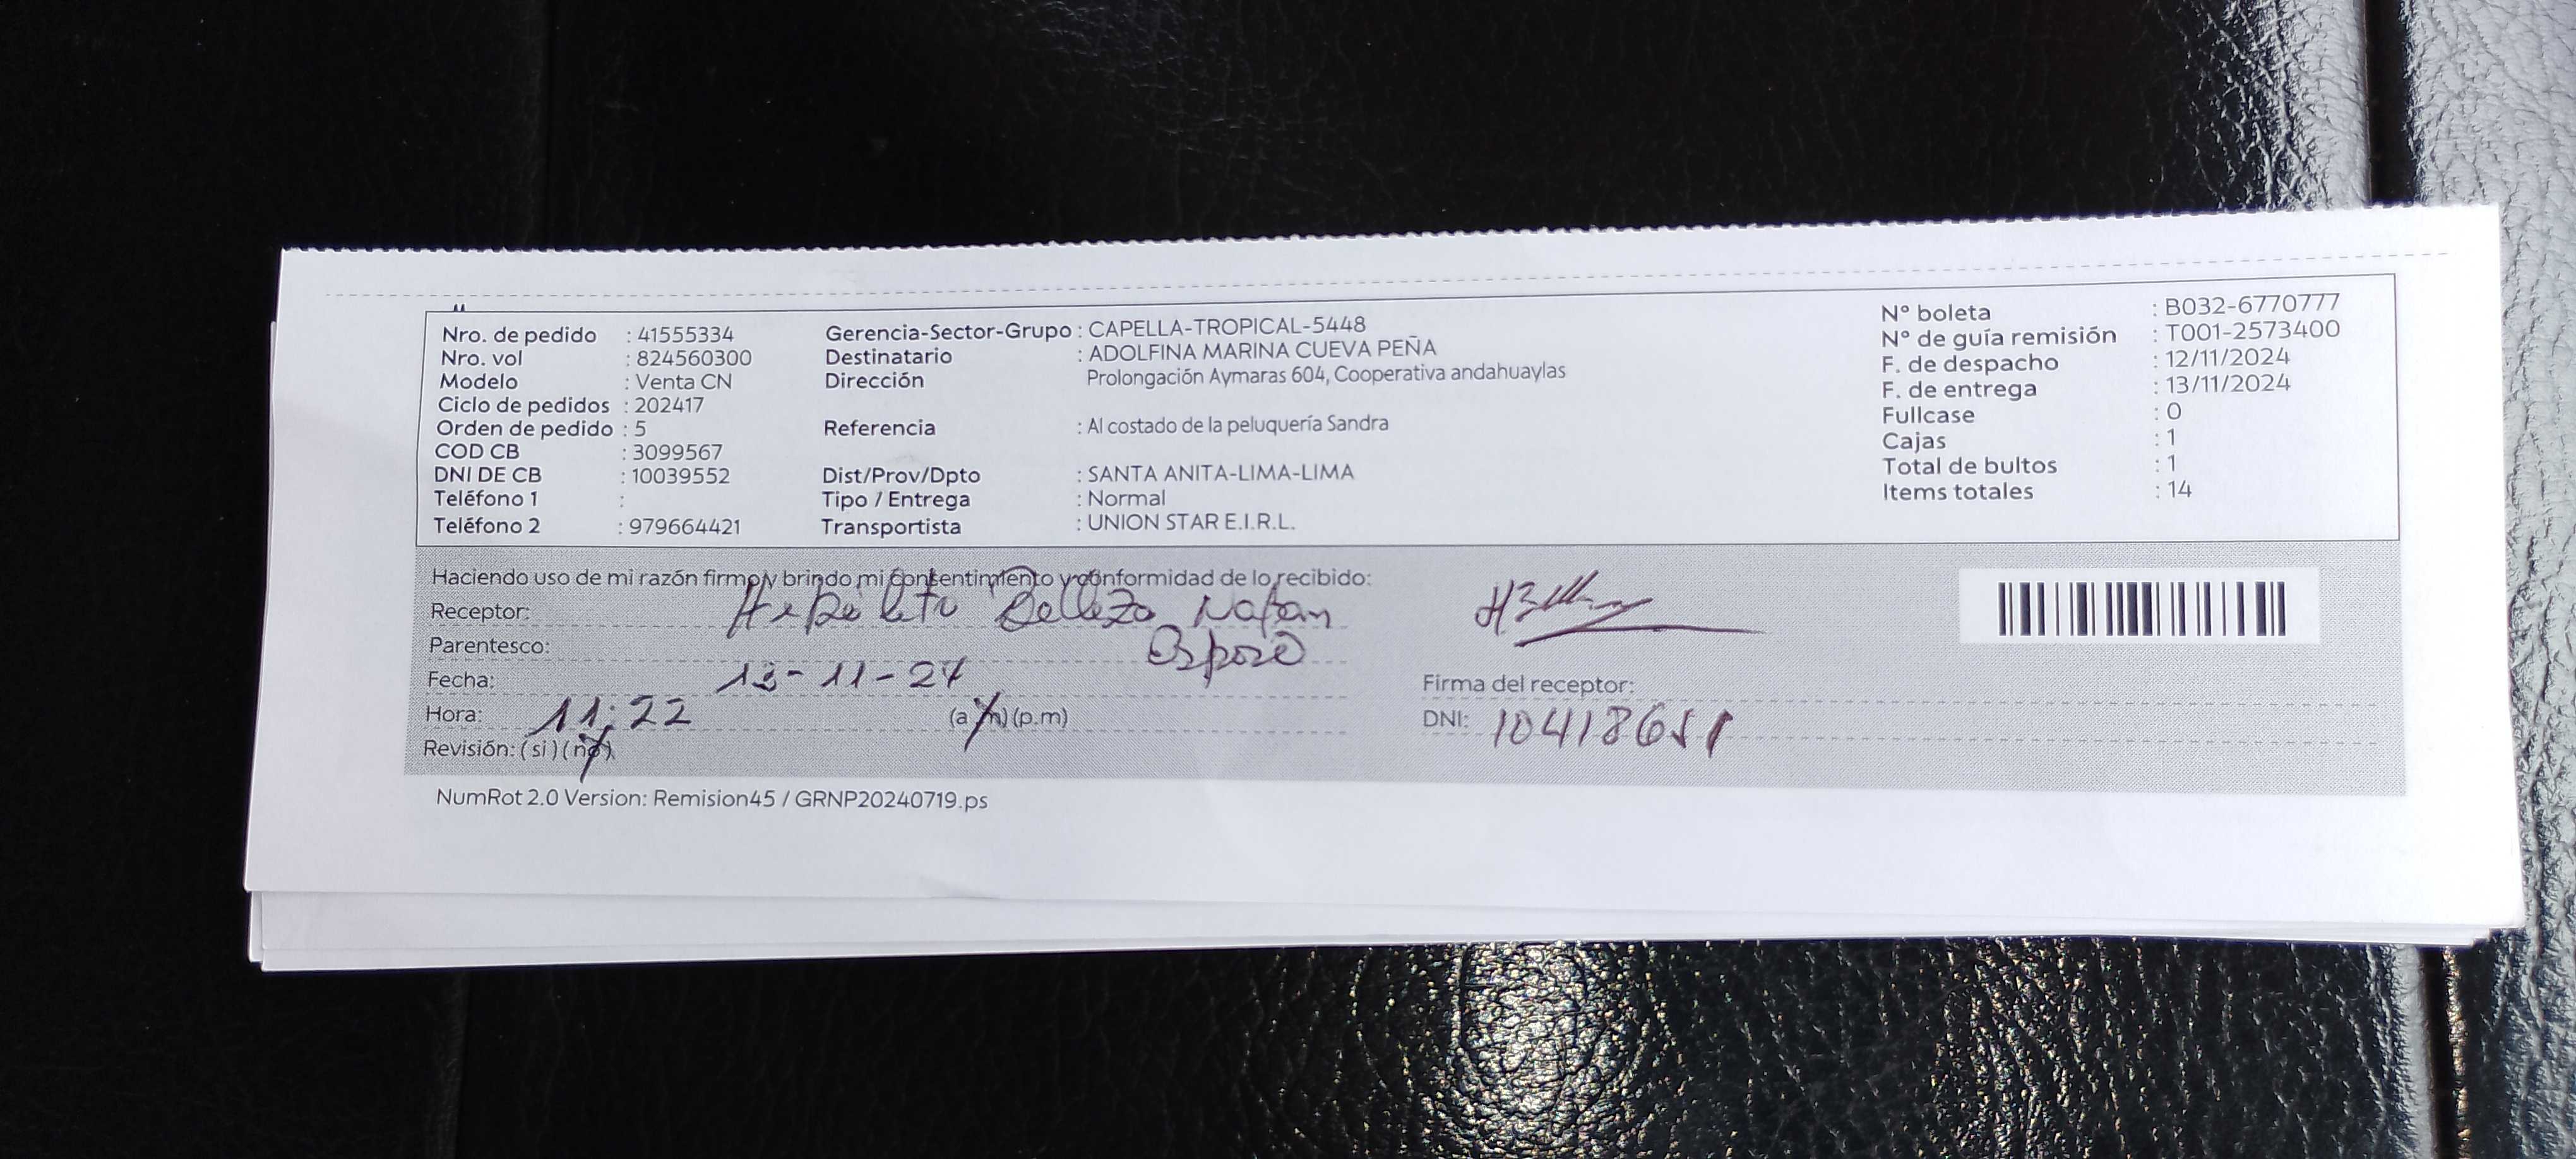 Nro. de pedido : 41555334
Nro. vol : 824560300
Modelo : Venta CN
Ciclo de pedidos : 202417
Orden de pedido : 5
COD CB : 3099567
DNI DE CB : 10039552
Teléfono 1 :
Teléfono 2 : 979664421
Gerencia-Sector-Grupo : CAPELLA-TROPICAL-5448
Destinatario : ADOLFINA MARINA CUEVA PEÑA
Dirección Prolongación Aymaras 604, Cooperativa andahuaylas
Referencia : Al costado de la peluquería Sandra
Dist/Prov/Dpto : SANTA ANITA-LIMA-LIMA
Tipo / Entrega : Normal
Transportista : UNION STAR E.I.R.L.
N° boleta : B032-6770777
N° de guía remisión : T001-2573400
F. de despacho : 12/11/2024
F. de entrega : 13/11/2024
Fullcase : 0
Cajas : 1
Total de bultos : 1
Items totales : 14
Haciendo uso de mi razón firmo y brindo mi consentimiento y conformidad de lo recibido:
Receptor:
Parentesco: Esposo
Fecha: 13-11-24
Hora: 11:22 (a.m)(p.m)
Revisión: (si)(no)
Firma del receptor:
DNI: 10418651
NumRot 2.0 Version: Remision45 / GRNP20240719.ps